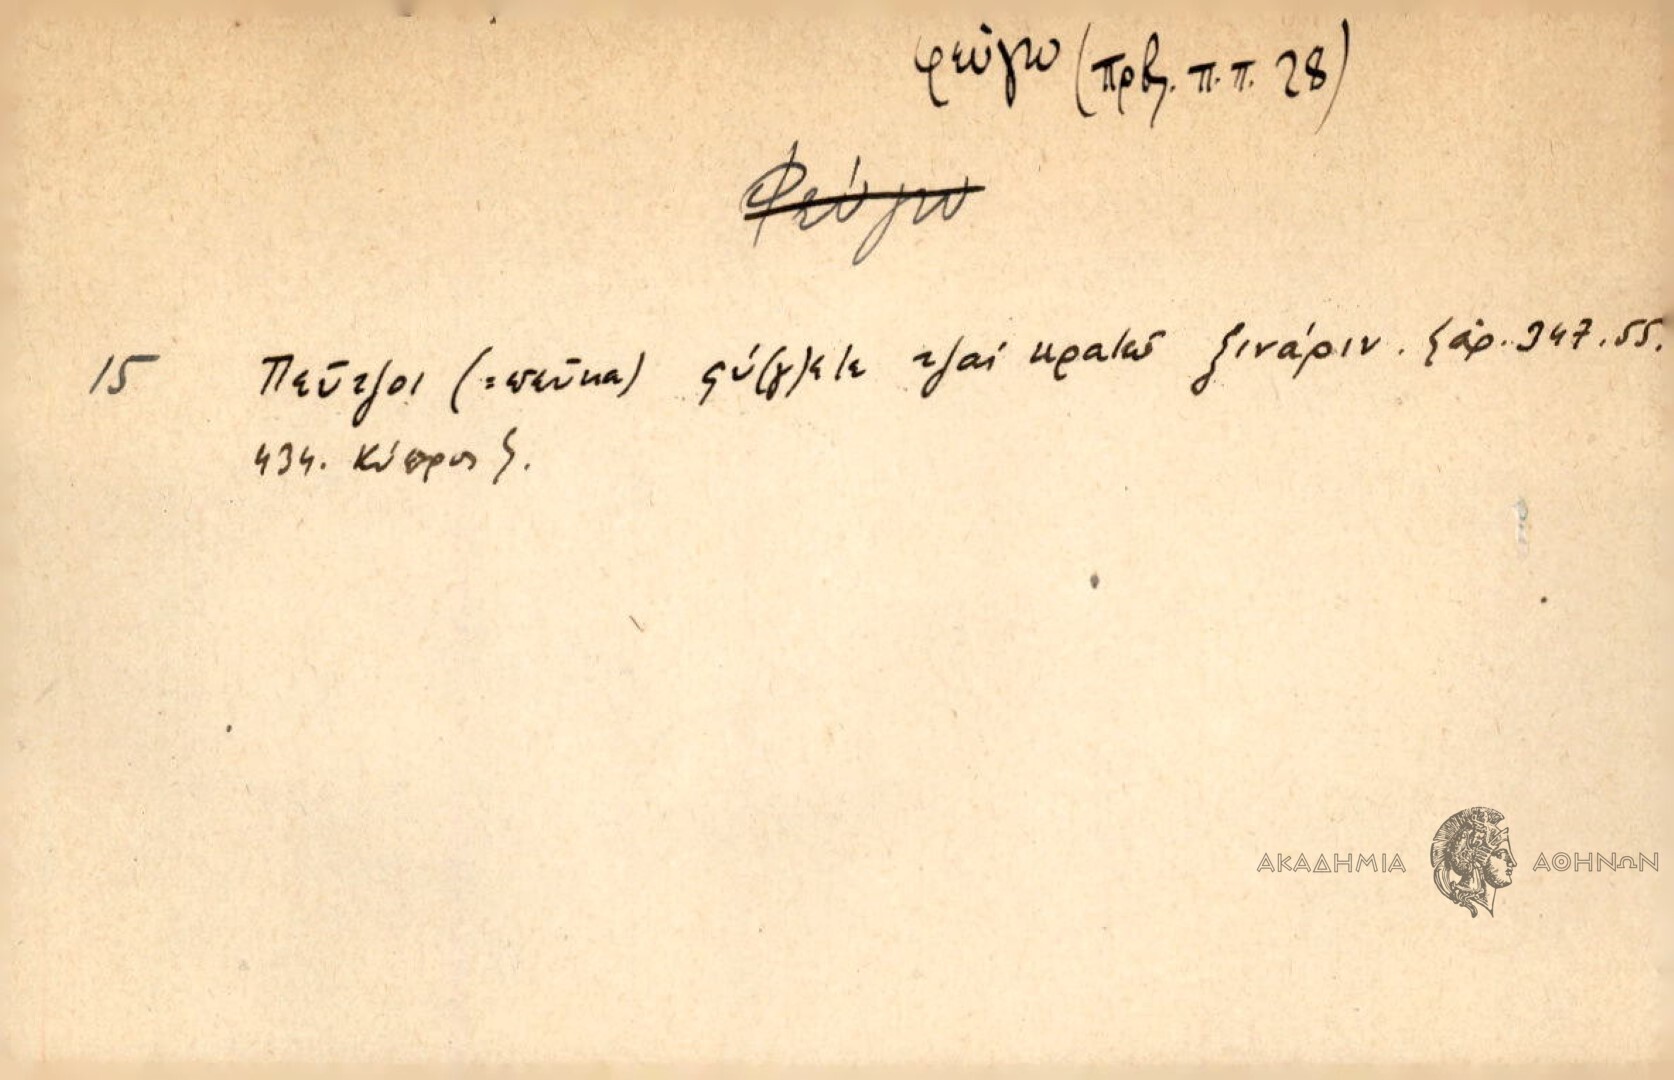 φεύγω (πρβ. π.π. 28)
Φεύγω
15 Πεῦτζοι (=πεῦκα) φύ(γ)ετε τζαὶ κρατῶ ξινάριν. ξάρ. 347.55.
434. Κύπρος ξ.
ΑΚΑΔΗΜΙΑ ΑΘΗΝΩΝ